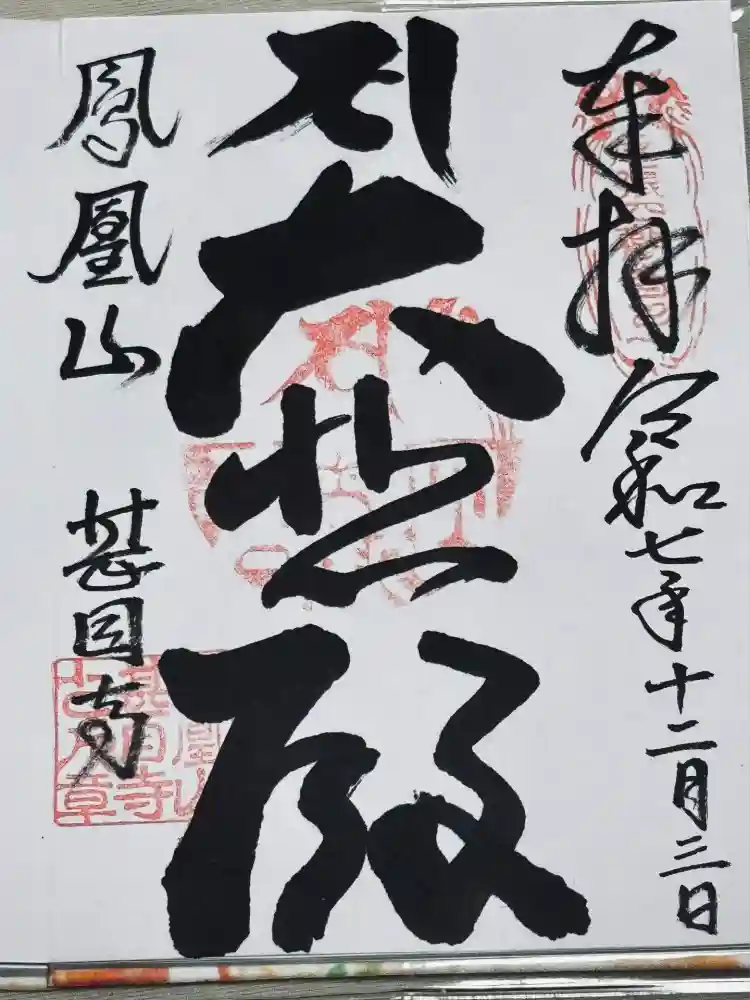 奉拝 令和七年十二月三日
大悲殿
鳳凰山 甚目寺